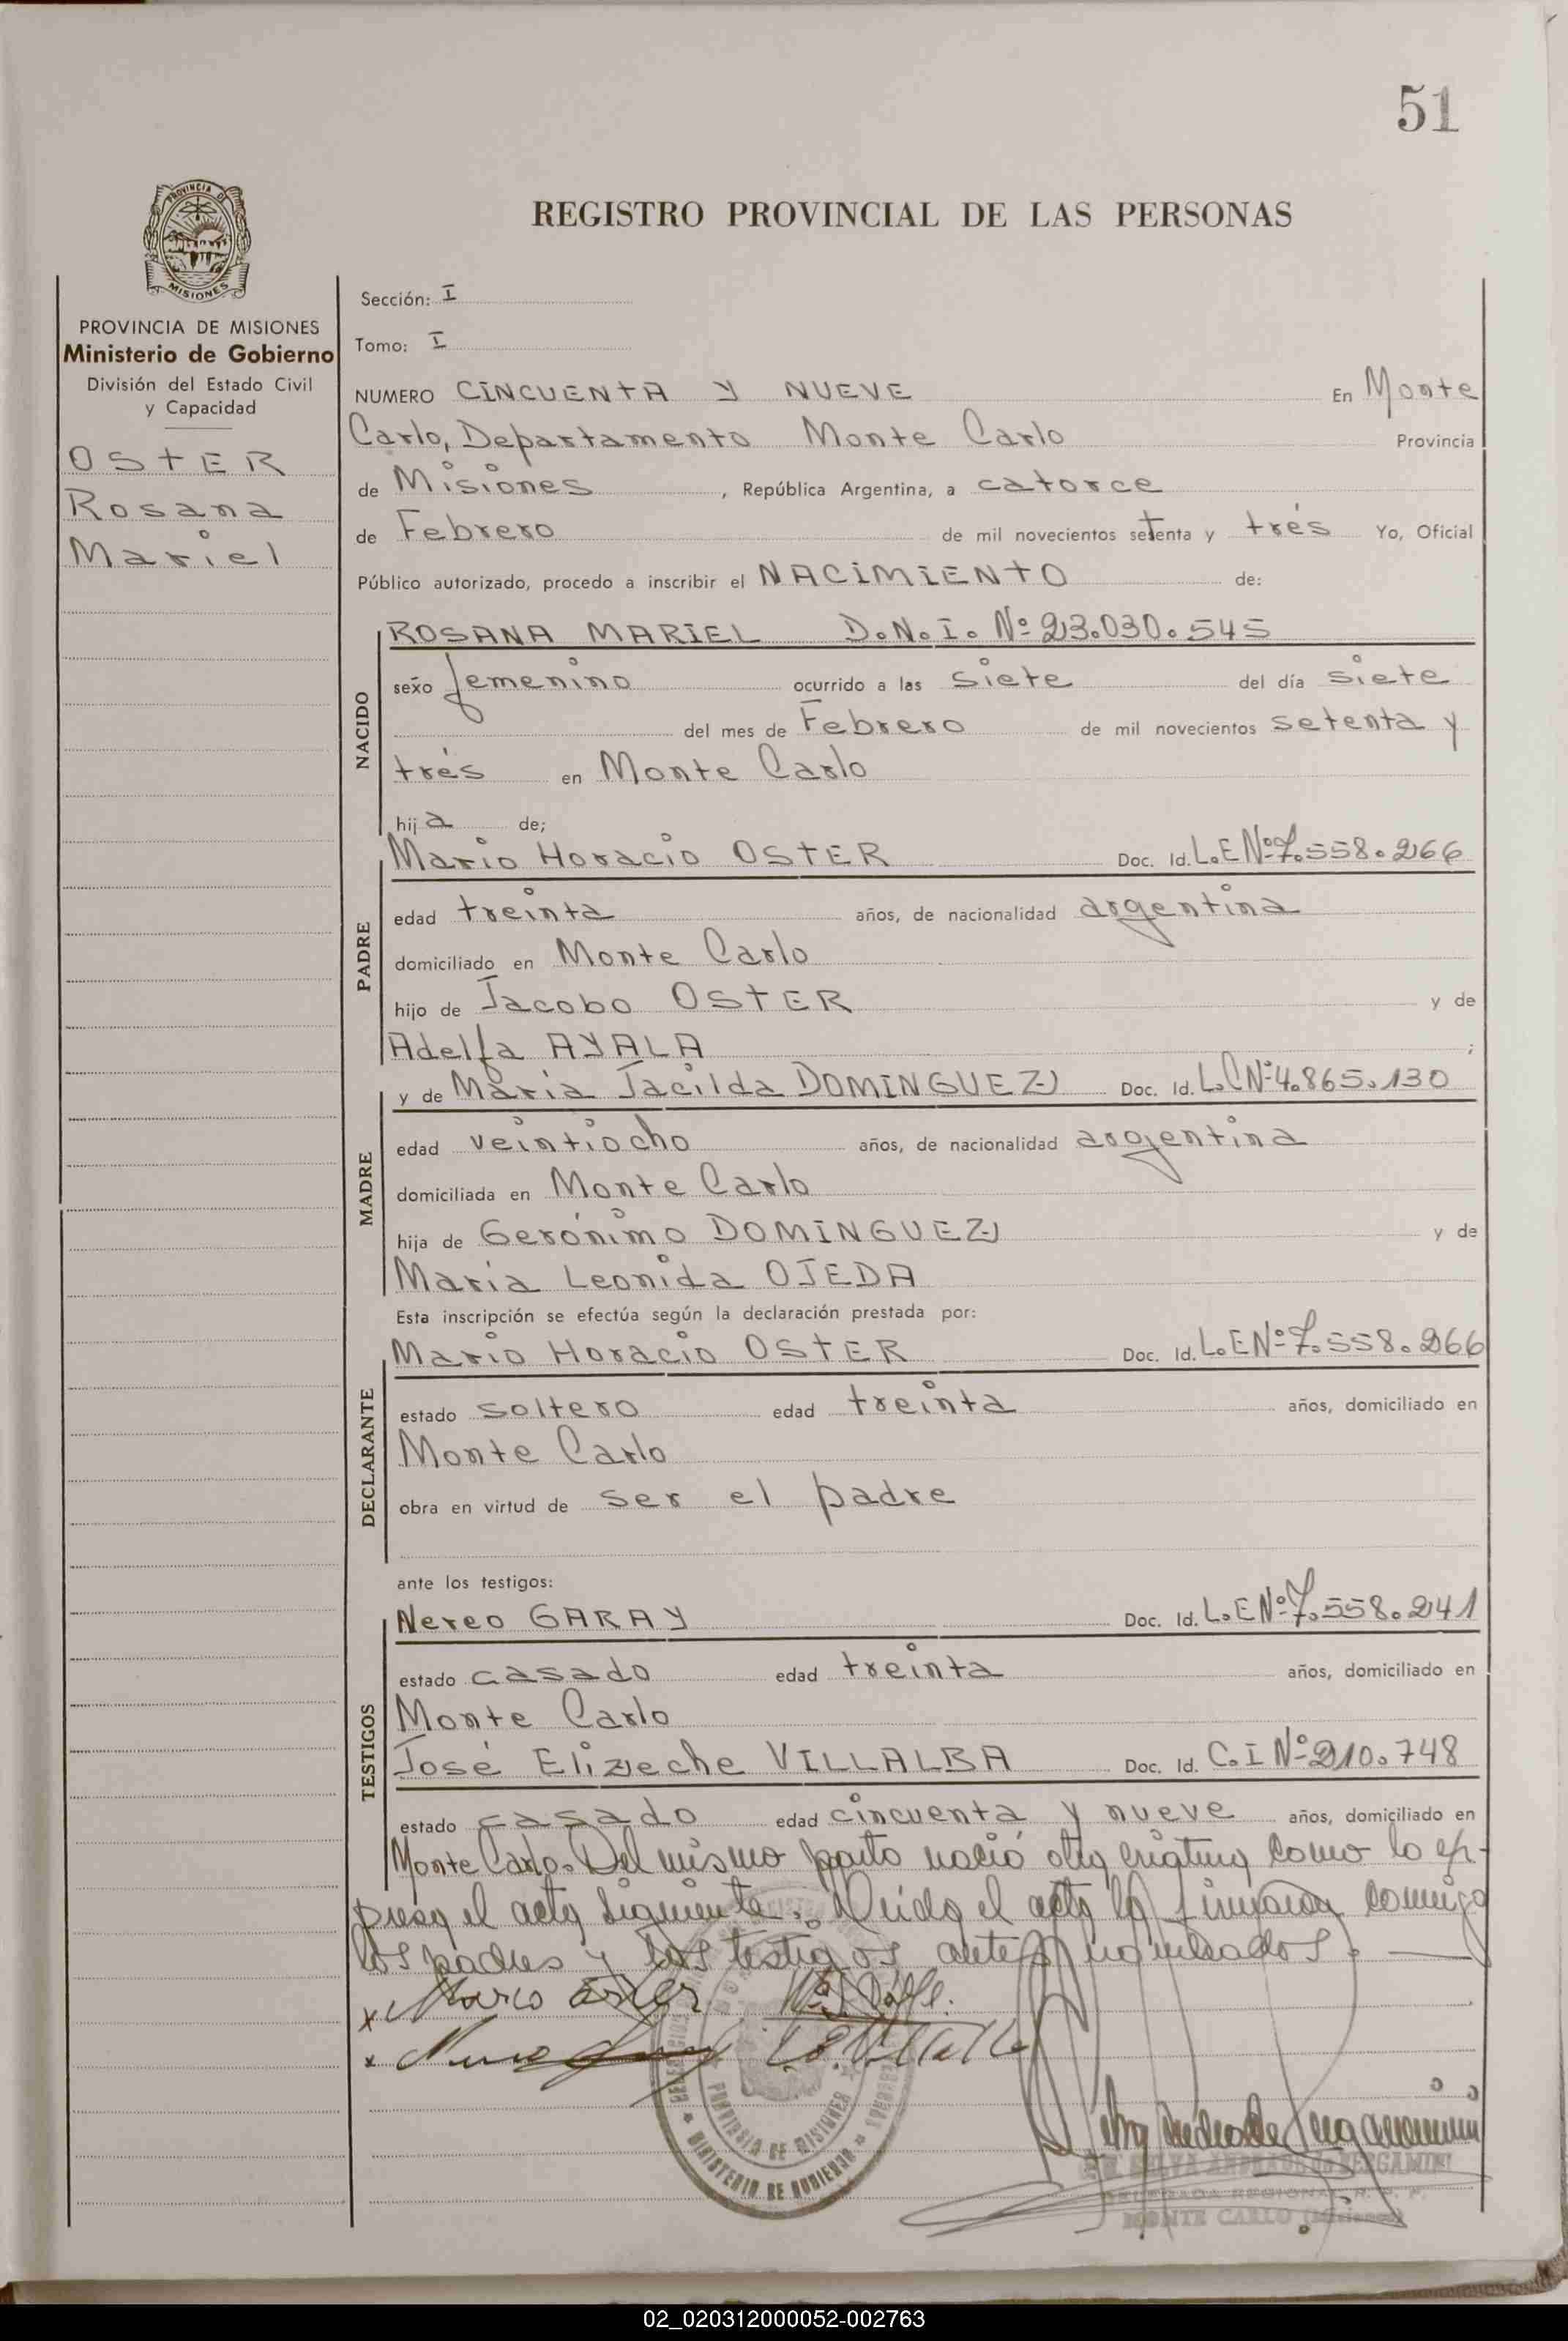 51
PROVINCIA DE
MISIONES
REGISTRO PROVINCIAL DE LAS PERSONAS
PROVINCIA DE MISIONES
Ministerio de Gobierno
División del Estado Civil
y Capacidad
OSTER
Rosana
Mariel
Sección: I
Tomo: I
NUMERO CINCUENTA Y NUEVE En Monte
Carlo, Departamento Monte Carlo Provincia
de Misiones, República Argentina, a catorce
de Febrero de mil novecientos setenta y trés Yo, Oficial
Público autorizado, procedo a inscribir el NACIMIENTO de:
NACIDO
ROSANA MARIEL D.N.I. Nº 23.030.545
sexo femenino ocurrido a las siete del día siete
del mes de Febrero de mil novecientos setenta y
trés en Monte Carlo
hija de;
PADRE
Mario Horacio OSTER Doc. Id. L.E Nº 7.558.266
edad treinta años, de nacionalidad argentina
domiciliado en Monte Carlo
hijo de Jacobo OSTER y de
Adelfa AYALA ;
MADRE
y de María Jacilda DOMINGUEZ Doc. Id. L.C Nº 4.865.130
edad veintiocho años, de nacionalidad argentina
domiciliada en Monte Carlo
hija de Gerónimo DOMINGUEZ y de
María Leonida OJEDA
Esta inscripción se efectúa según la declaración prestada por:
DECLARANTE
Mario Horacio OSTER Doc. Id. L.E Nº 7.558.266
estado soltero edad treinta años, domiciliado en
Monte Carlo
obra en virtud de ser el padre
ante los testigos:
TESTIGOS
Nereo GARAY Doc. Id. L.E Nº 7.558.241
estado casado edad treinta años, domiciliado en
Monte Carlo
José Elizeche VILLALBA Doc. Id. C.I Nº 210.748
estado casado edad cincuenta y nueve años, domiciliado en
Monte Carlo. Del mismo parto nació otra criatura como lo ex-
presa el acta siguiente. Leida el acta la firmaron comigo
los padres y los testigos antes nombrados.
x Mario Oster
x
PROVINCIA DE MISIONES
MINISTERIO DE GOBIERNO
DELEGADA REGIONAL R. P. P.
MONTE CARLO (Misiones)
02_020312000052-002763